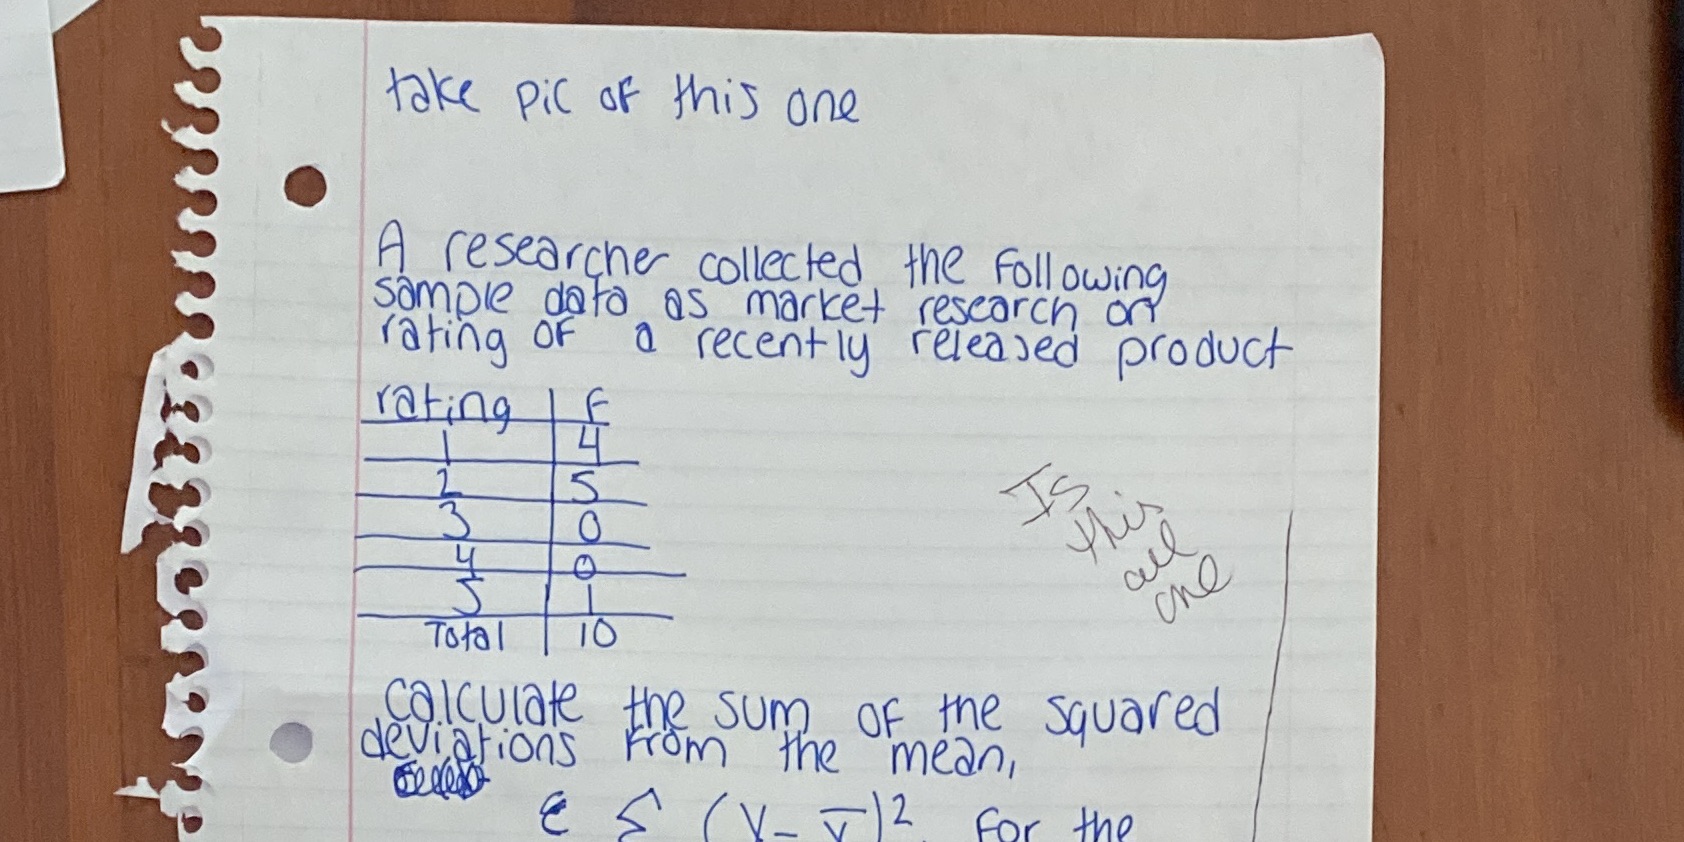 take pic of this one
A researcher collected the following
sample data as market research on
rating of a recently released product
rating f
1 4
2 5
3 0
4 0
5 1
Total 10
Is
this
all
one
calculate the sum of the squared
deviations from the mean,
Σ (x - x̄)² for the